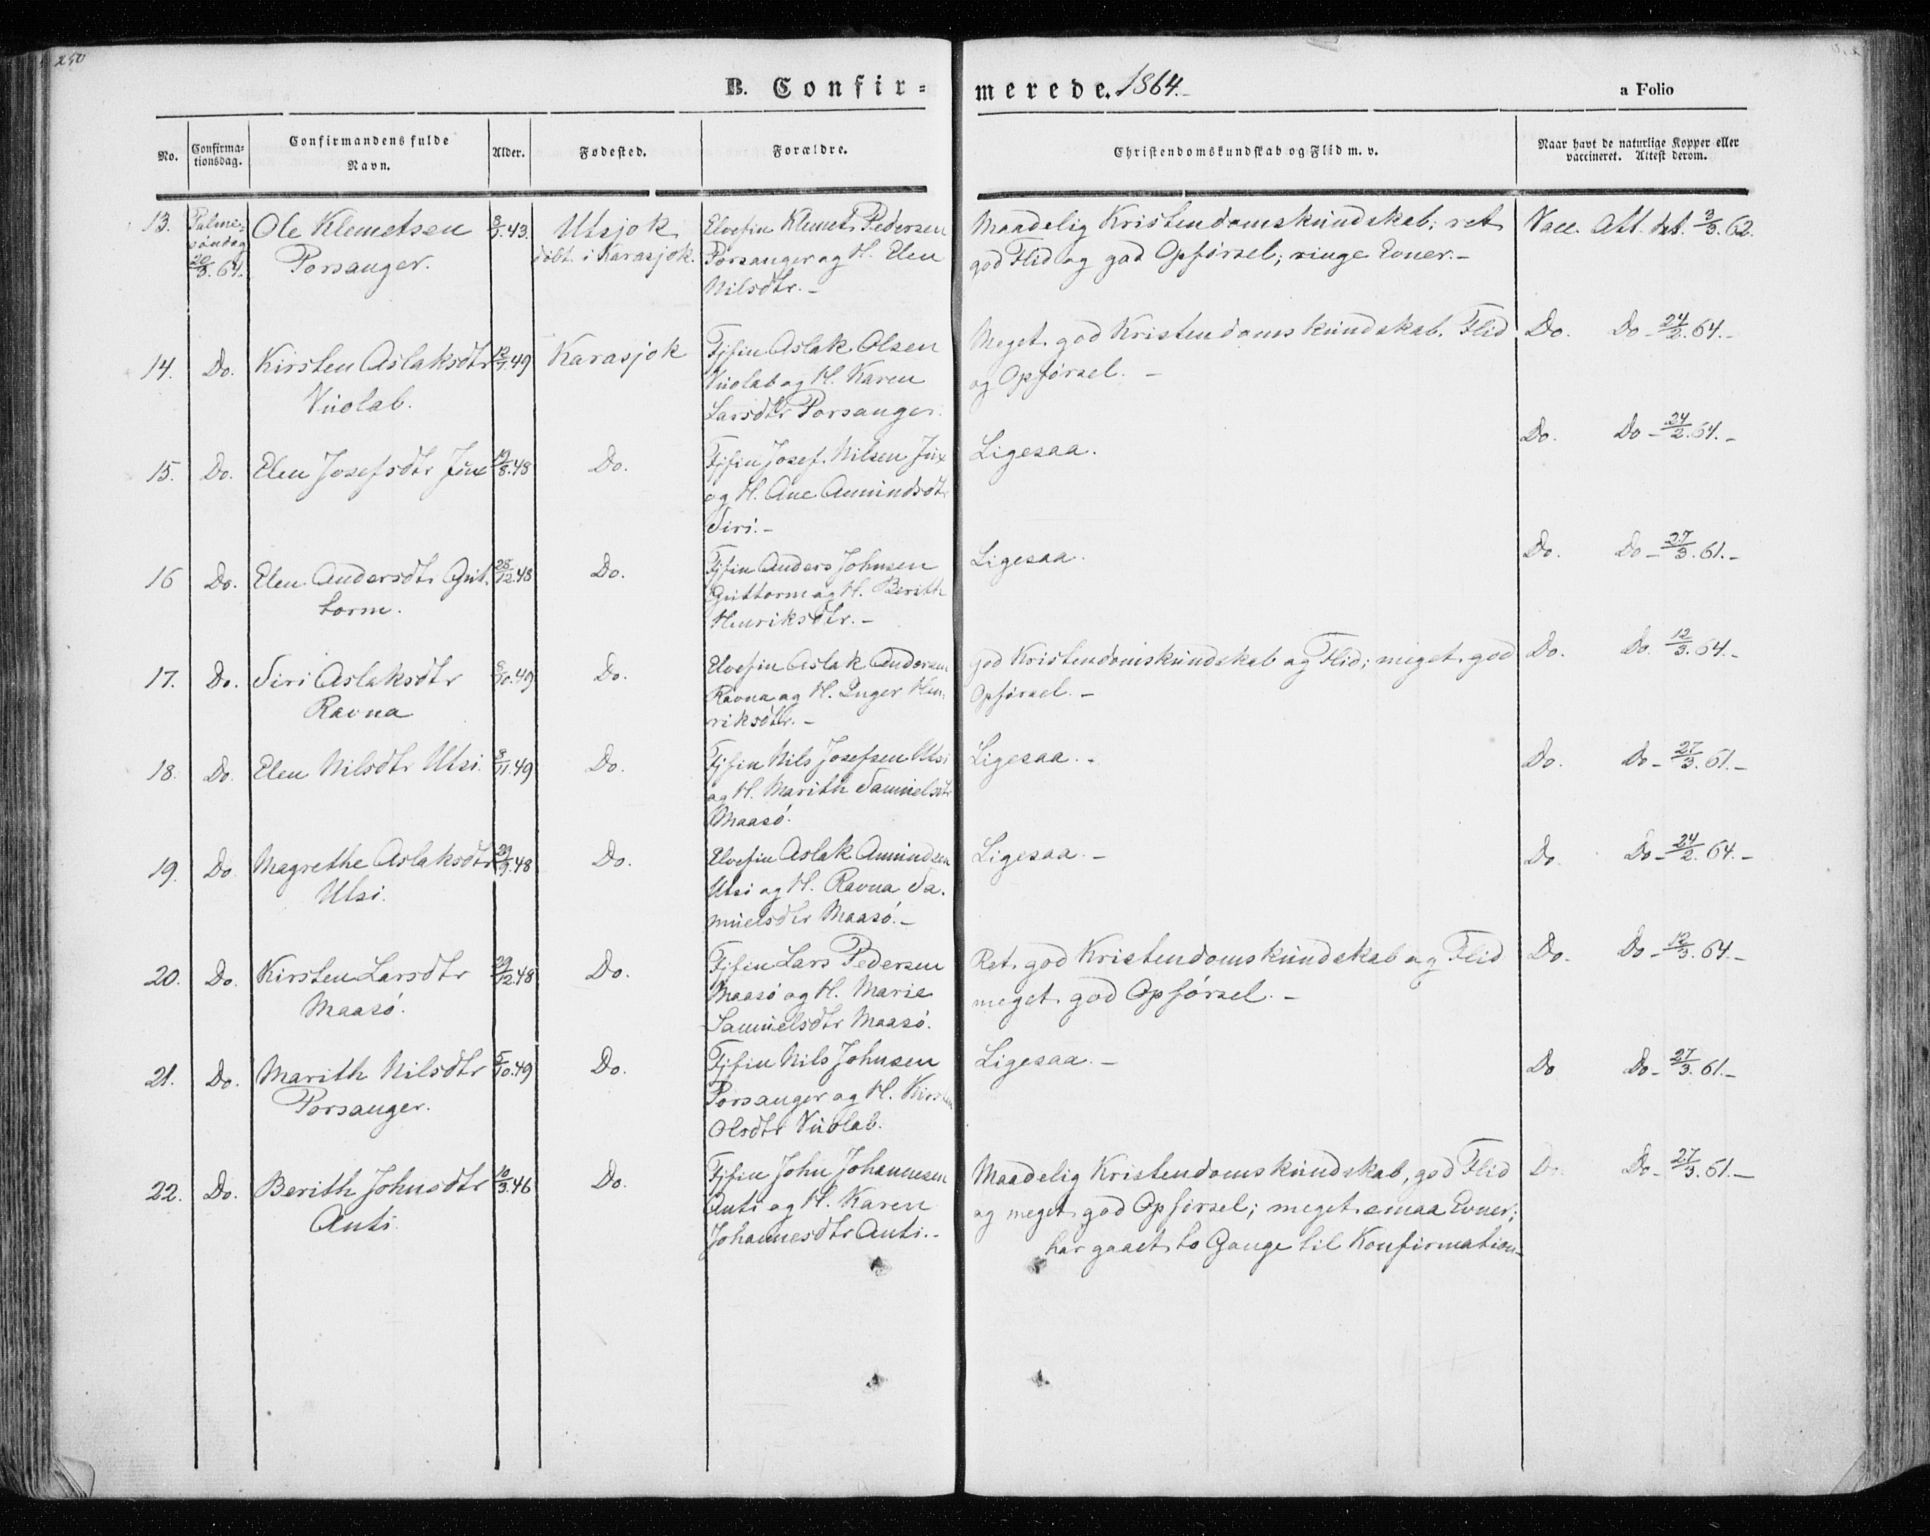 250
B. Confir=
merede. 1864.-
a Folio
No.
Confirma-
tionsdag.
Confirmandens fulde
Navn.
Alder.
Fødested.
Forældre.
Christendomskundskab og Flid m. v.
Naar havt de naturlige Kopper eller
vaccineret. Attest derom.
13. Palme- Ole Klemetsen 43. Utsjok Elvefin Klemet Pedersen Maadelig Kristendomskundskab; ret Vacc. Att. dat. 3/3. 62.
søndag Porsanger. døbt i Karasjok. Porsanger og H. Elen god Flid og god Opførsel; ringe Evner.-
20/3. 64. Nilsdtr.-
14. Do. Kirsten Aslaksdtr 49 Karasjok Fjfin Aslak Olsen Meget god Kristendomskundskab, Flid Do. Do - 24/2. 64.-
Vuolab. Vuolab og H. Karen og Opførsel. -
Larsdtr Porsanger.
15. Do. Elen Josefsdtr Jux 19/8.48 Do. Fjfin Josef Nilsen Jux Ligesaa. Do. Do - 24/2. 64.-
og H. Ane Amundsdtr
Siri.-
16 Do. Elen Andersdtr Gut- 28/12.48 Do. Fjfin Anders Johnsen Ligesaa. Do. Do - 27/3. 61.-
torm. Guttorm og H. Berith
Henriksdtr.-
17. Do. Siri Aslaksdtr 10.49 Do. Elvefin Aslak Andersen god Kristendomskundskab og Flid; meget god Do. Do. 12/3. 64.-
Ravna Ravna og H. Inger Hen- Opførsel.-
riksdtr.-
18. Do. Elen Nilsdtr Utsi. 3/11.49 Do. Fjfin Nils Josefsen Utsi Ligesaa.- Do. Do - 27/3. 61.-
og H. Marith Samuelsdtr
Maasø.
19. Do. Magrethe Aslaksdtr 48 Do. Elvefin Aslak Amundsen Ligesaa.- Do. Do - 24/2. 64.-
Utsi. Utsi og H. Ravna Sa-
muelsdtr Maasø.-
20. Do. Kirsten Larsdtr 29/12.48 Do. Fjfin Lars Pedersen Ret god Kristendomskundskab og Flid Do. Do - 12/3. 64.-
Maasø. Maasø og H. Marie meget god Opførsel.-
Samuelsdtr Maasø.
21. Do. Marith Nilsdtr 5/10.49 Do. Fjfin Nils Johnsen Ligesaa.- Do Do - 27/3. 61.-
Porsanger. Porsanger og H. Kirsten
Olsdtr Vuolab.
22. Do. Berith Johnsdtr 10/3.46 Do. Fjfin John Johannesen Maadelig Kristendomskundskab, god Flid Do. Do - 27/3. 61.-
Anti. Anti og H. Karen og meget god Opførsel; meget smaa Evner;
Johannesdtr Anti.- har gaaet to Gange til Konfirmation-